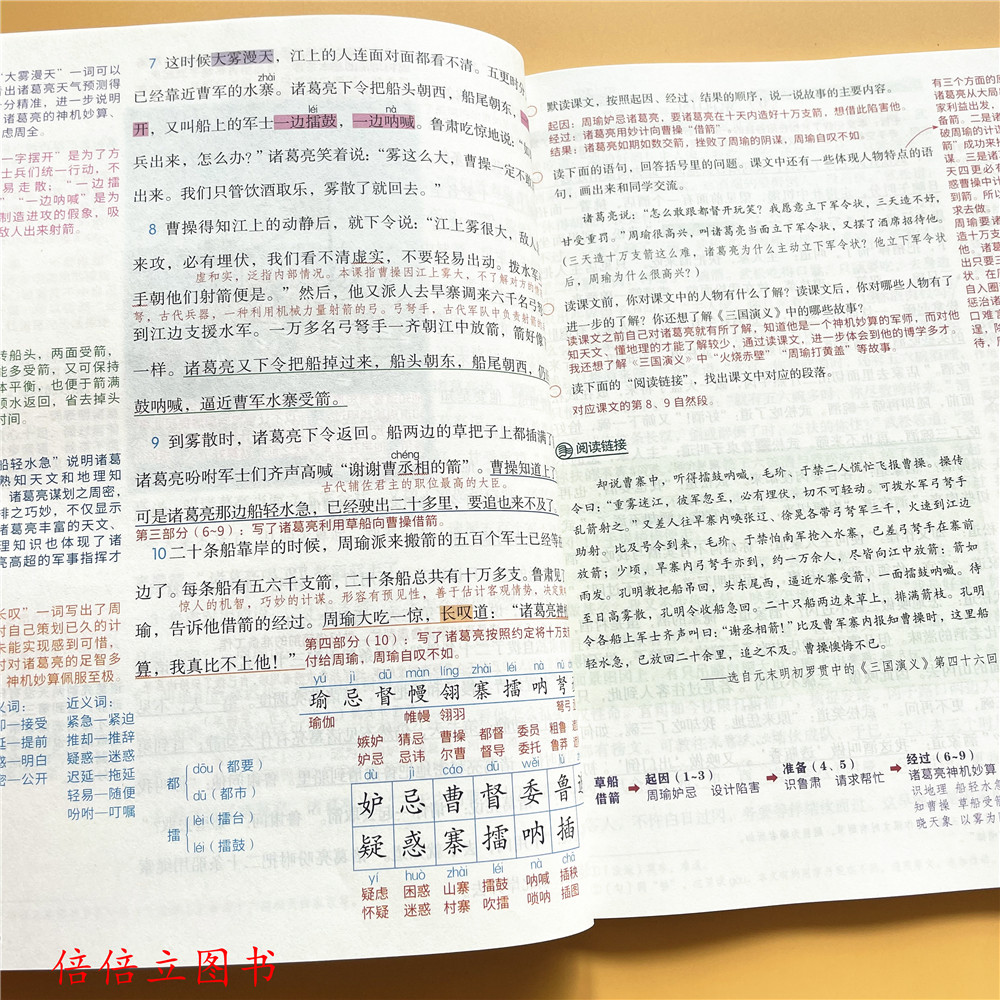 “大雾漫天”一词可以
看出诸葛亮天气预测得
十分精准，进一步说明
诸葛亮的神机妙算、
虑周全。
一字摆开”是为了方
士兵们统一行动，不
易走散；“一边擂
”“一边呐喊”是为
制造进攻的假象，吸
敌人出来射箭。
转船头，两面受箭，
能多受箭，又可保持
体平衡，也便于箭满
顺水返回，省去掉头
时间。
船轻水急”说明诸葛
熟知天文和地理知
诸葛亮谋划之周密，
排之巧妙，不仅显示
诸葛亮丰富的天文、
理知识也体现了诸
亮高超的军事指挥才
长叹”一词写出了周
对自己策划已久的计
未能实现感到可惜，
对对诸葛亮的足智多
神机妙算佩服至极。
义词：
接受
提前
明白
公开
近义词：
紧急—紧迫
推却—推辞
疑惑—迷惑
迟延—拖延
轻易—随便
吩咐—叮嘱
7 这时候大雾漫天，江上的人连面对面都看不清。五更时分
zhài
已经靠近曹军的水寨。诸葛亮下令把船头朝西，船尾朝东，
léi nà
开，又叫船上的军士一边擂鼓，一边呐喊。鲁肃吃惊地说：“如
兵出来，怎么办？”诸葛亮笑着说：“雾这么大，曹操一定不敢
出来。我们只管饮酒取乐，雾散了就回去。”
8 曹操得知江上的动静后，就下令说：“江上雾很大，敌人
来攻，必有埋伏，我们看不清虚实，不要轻易出动。拨水军
虚和实，泛指内部情况。本课指曹操因江上雾大，不了解对方的情
手朝他们射箭便是。”然后，他又派人去旱寨调来六千名弓弩
弩，古代兵器，一种利用机械力量射箭的弓。弓弩手，古代军队中负责射箭的
到江边支援水军。一万多名弓弩手一齐朝江中放箭，箭好像
一样。诸葛亮又下令把船掉过来，船头朝东，船尾朝西，仍
鼓呐喊，逼近曹军水寨受箭。
9 到雾散时，诸葛亮下令返回。船两边的草把子上都插满了
chéng
诸葛亮吩咐军士们齐声高喊“谢谢曹丞相的箭”。曹操知道上了
古代辅佐君主的职位最高的大臣。
可是诸葛亮那边船轻水急，已经驶出二十多里，要追也来不及了
第三部分（6~9）：写了诸葛亮利用草船向曹操借箭。
10 二十条船靠岸的时候，周瑜派来搬箭的五百个军士已经等在
边了。每条船有五六千支箭，二十条船总共有十万多支。鲁肃见了
惊人的机智，巧妙的计谋。形容有预见性，善于估计客观情势，决定
瑜，告诉他借箭的经过。周瑜大吃一惊，长叹道：“诸葛亮神
算，我真比不上他！”
第四部分（10）：写了诸葛亮按照约定将十万支
付给周瑜，周瑜自叹不如。
yú jì dū màn líng zhài léi nà nǔ
瑜 忌 督 幔 翎 寨 擂 呐 弩
瑜伽 帷幔 翎羽 弓弩
嫉妒 猜忌 曹操 都督 委员 粗鲁
妒忌 忌讳 尔曹 督导 委托 鲁莽
都 dōu（都要） dū（都市）
擂 lèi（擂台） léi（擂鼓）
dù jì cáo dū wěi lǔ
妒 忌 曹 督 委 鲁
疑 惑 寨 擂 呐 插
yí huò zhài léi nà chā
疑虑 困惑 山寨 擂鼓 呐喊 插秧
怀疑 迷惑 村寨 吹擂 唢呐 插图
默读课文，按照起因、经过、结果的顺序，说一说故事的主要内容。
起因：周瑜妒忌诸葛亮，要诸葛亮在十天内造好十万支箭，想借此陷害他。
经过：诸葛亮用妙计向曹操“借箭”。
结果：诸葛亮如期如数交箭，挫败了周瑜的阴谋，周瑜自叹不如。
读下面的语句，回答括号里的问题。课文中还有一些体现人物特点的语
句，画出来和同学交流。
诸葛亮说：“怎么敢跟都督开玩笑？我愿意立下军令状，三天造不好，
甘受重罚。”周瑜很高兴，叫诸葛亮当面立下军令状，又摆了酒席招待他。
（三天造十万支箭这么难，诸葛亮为什么主动立下军令状？他立下军令状
后，周瑜为什么很高兴？）
读课文前，你对课文中的人物有什么了解？读课文后，你对哪些人物有了
进一步的了解？你还想了解《三国演义》中的哪些故事？
读课文之前自己对诸葛亮就有所了解，知道他是一个神机妙算的军师，而对他
知天文、懂地理的才能了解较少，通过读课文，进一步体会到他的博学多才。
我还想了解《三国演义》中“火烧赤壁”“周瑜打黄盖”等故事。
读下面的“阅读链接”，找出课文中对应的段落。
对应课文的第8、9自然段。
阅读链接
却说曹寨中，听得擂鼓呐喊，毛玠、于禁二人慌忙飞报曹操。操传
令曰：“重雾迷江，彼军忽至，必有埋伏，切不可轻动。可拨水军弓弩手
乱箭射之。”又差人往旱寨内唤张辽、徐晃各带弓弩军三千，火速到江边
助射。比及号令到来，毛玠、于禁怕南军抢入水寨，已差弓弩手在寨前
放箭；少顷，旱寨内弓弩手亦到，约一万余人，尽皆向江中放箭：箭如
雨发。孔明教把船吊回，头东尾西，逼近水寨受箭，一面擂鼓呐喊。待
至日高雾散，孔明令收船急回。二十只船两边束草上，排满箭枝。孔明
令各船上军士齐声叫曰：“谢丞相箭！”比及曹军寨内报知曹操时，这里船
轻水急，已放回二十余里，追之不及。曹操懊悔不已。
——选自元末明初罗贯中的《三国演义》第四十六回
草船
借箭
起因（1~3）
周瑜妒忌 设计陷害
准备（4、5）
识鲁肃 请求帮忙
经过（6~9）
诸葛亮神机妙算
识地理 船轻水急
知曹操 草船受箭
晓天象 以雾为
有三个方面的
亮从大局
家利益出发，
备箭。二是诸
破周瑜的计
箭”成功来挫
谋。三是诸
天四更必有
惑曹操中计
到箭。所以
求去做。
倍倍立图书